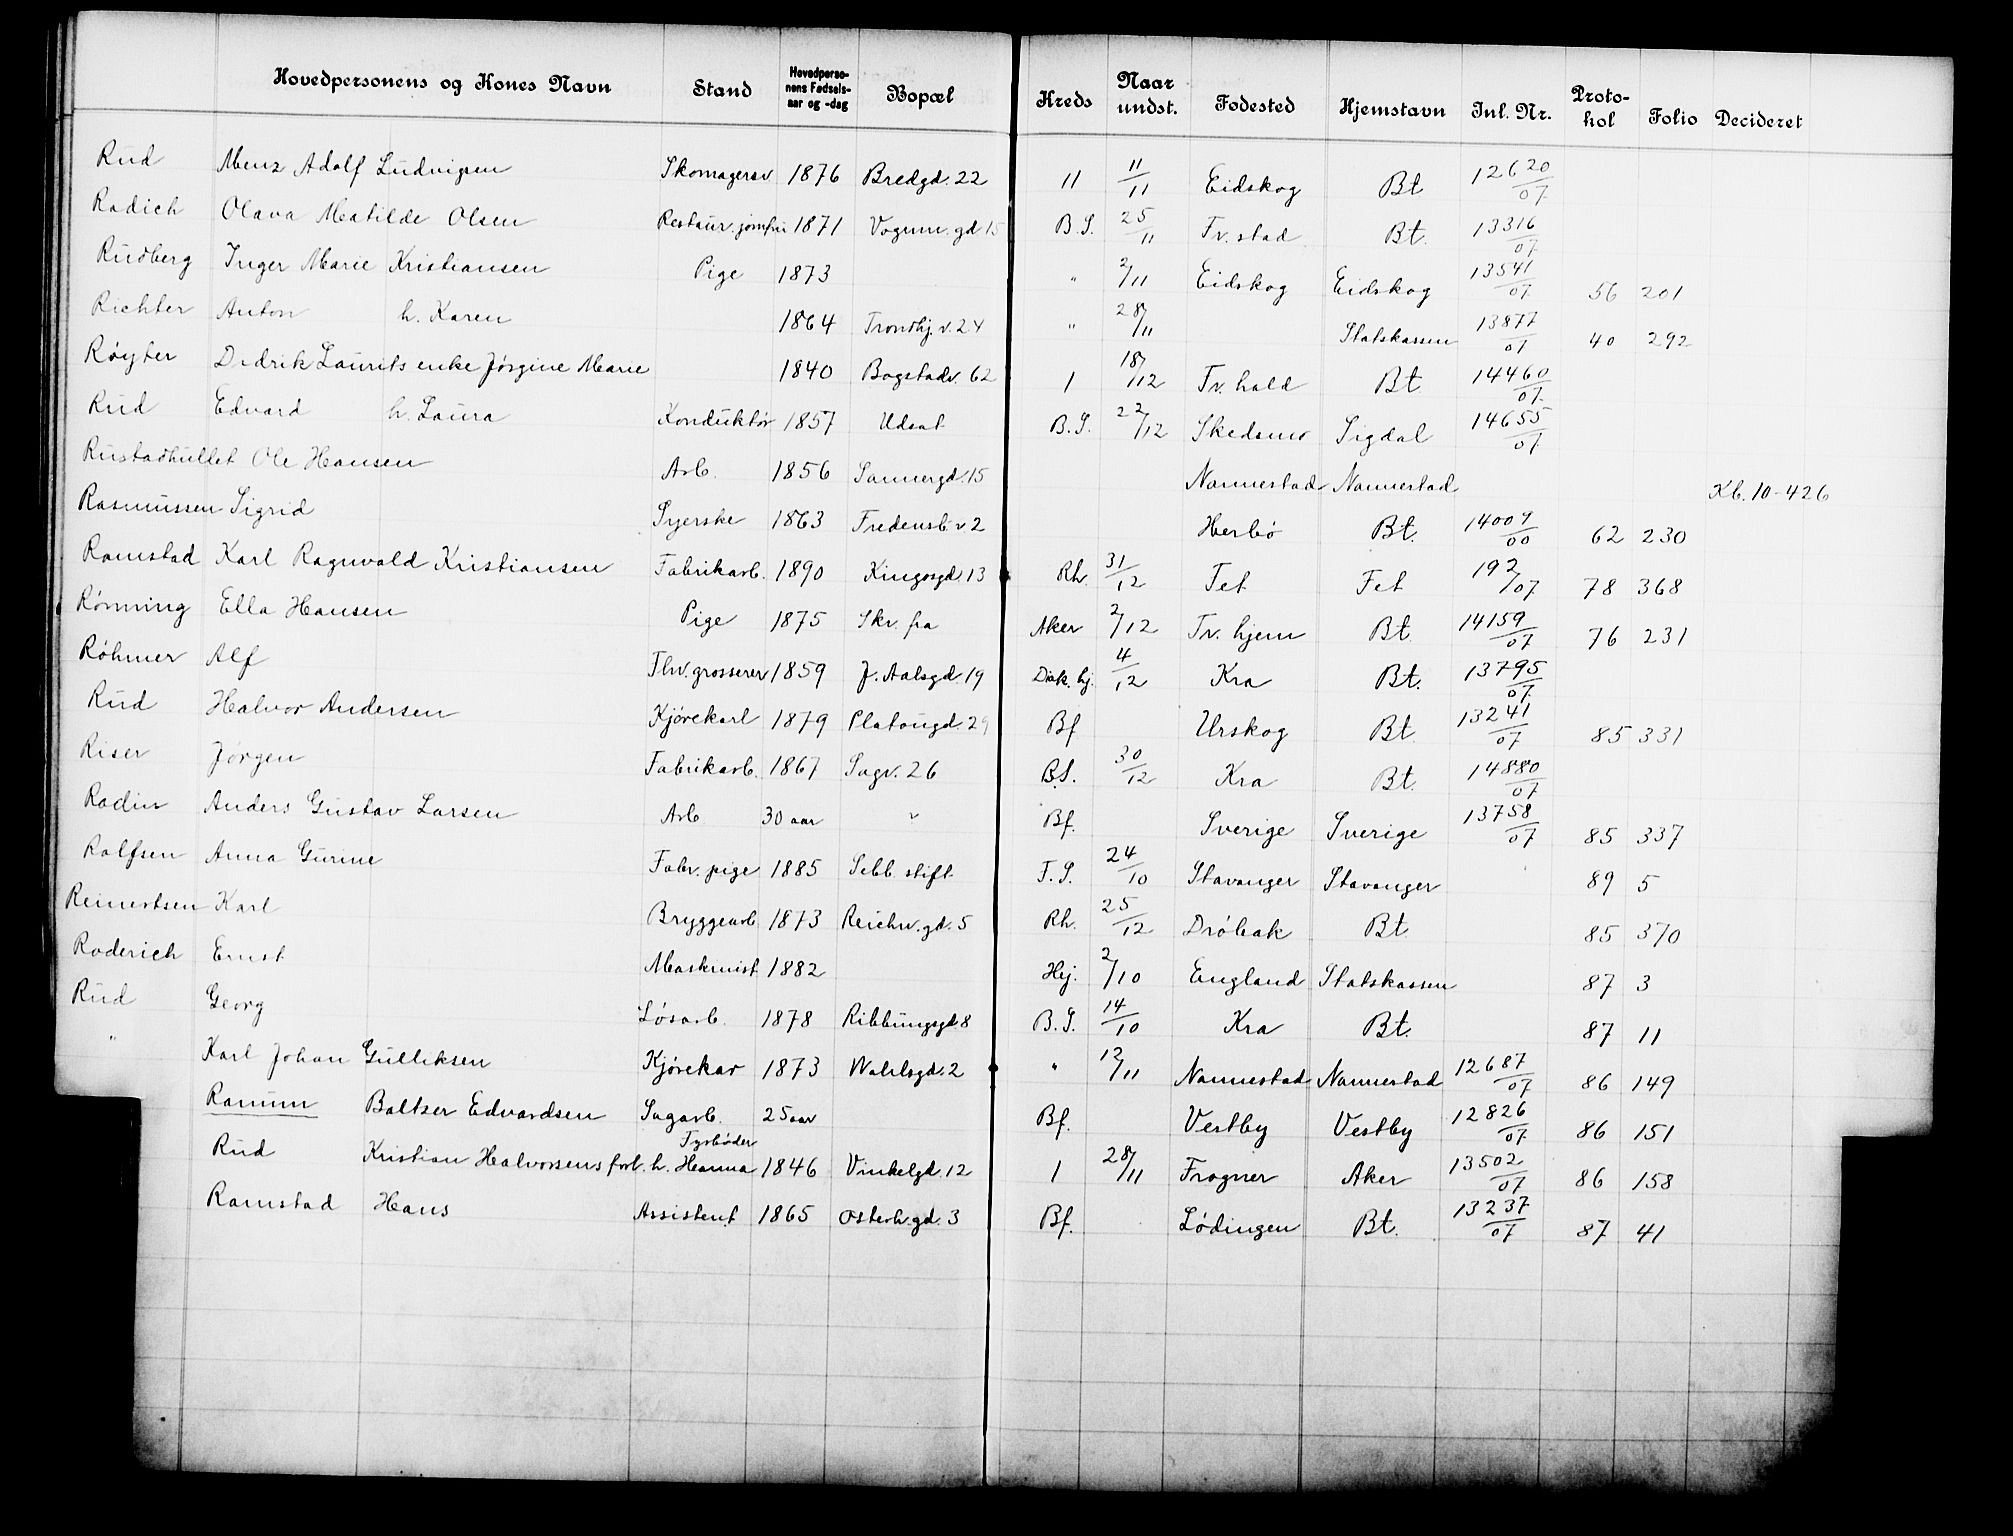 Hovedpersonens og Kones Navn Stand Hovedperso-nens Fødsels-aar og -dag Bopæl Kreds Naar undst. Fødested Hjemstavn Inl. Nr. Proto-kol Folio Decideret
Rud Menz Adolf Ludvigsen Skomagersv 1876 Bredgd. 22 11 11/11 Eidskog Bt. 12620/07
Radich Olava Matilde Olsen Restaur. jomfru 1871 Vognm. gd 15 B.S. 25/11 Fr. stad Bt. 13316/07
Rudberg Inger Marie Kristiansen Pige 1873 " 2/11 Eidskog Eidskog 13541/07 56 201
Richter Anton h. Karen 1864 Trondhj. v. 24 " 28/11 Statskassen 13877/07 40 292
Røyter Didrik Laurits enke Jørgine Marie 1840 Bogstadv. 62 1 18/12 Fr. hald Bt. 14460/07
Rud Edvard h. Laura Konduktør 1857 Udsat B.S. 22/12 Skedsmo Sigdal 14655/07
Rustadhullet Ole Hansen Arb. 1856 Sannergd. 15 Nannestad Nannestad Kb. 10-426
Rasmussen Sigrid Syerske 1863 Fredensb. v 2 Herbö Bt. 14009/00 62 230
Ramstad Karl Ragnvald Kristiansen Fabrikarb. 1890 Kingosgd. 13 Rh. 31/12 Fet Fet 192/07 78 368
Rønning Ella Hansen Pige 1875 Skr. fra Aker 2/12 Tr. hjem Bt. 14159/07 76 231
Röhmer Alf Fhv. grosserer 1859 J. Aalsgd. 19 Diak. hj. 4/12 Kra Bt. 13795/07
Rud Halvor Andersen Kjørekarl 1879 Platougd. 29 Bf Urskog Bt. 13241/07 85 331
Riser Jørgen Fabrikarb. 1867 Sagv. 26 B.S. 30/12 Kra Bt. 14880/07
Radin Anders Gustav Larsen Arb 30 aar " Bf. Sverige Sverige 13758/07 85 337
Ralfsen Anna Gurine Fabr. pige 1885 Sebb. stift. F.S. 24/10 Stavanger Stavanger 89 5
Reinertsen Karl Bryggearb 1873 Reichw. gd. 5 Rh. 25/12 Drøbak Bt. 85 370
Roderich Ernst Maskinist 1882 Hej. 2/10 England Statskassen 87 3
Rud Georg Løsarb. 1878 Ribbungsgd. 8 B.S. 14/10 Kra Bt. 87 11
" Karl Johan Gulliksen Kjørekar 1873 Wahlsgd. 2 " 12/11 Nannestad Nannestad 12687/07 86 149
Ranum Baltzer Edvardsen Sagarb. 25 aar Bf. Vestby Vestby 12826/07 86 151
Fyrbøder
Rud Kristian Halvorsens forl. h. Hanna 1846 Vinkelgd. 12 1 28/11 Frogner Aker 13502/07 86 158
Ramstad Hans Assistent 1865 Osterh. gd. 3 Bf. Lödingen Bt. 13237/07 87 41